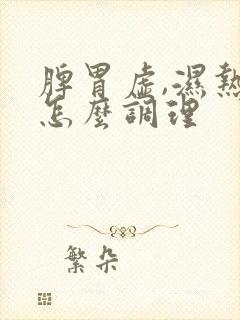 脾胃虛,濕熱
怎麼調理
繁朵